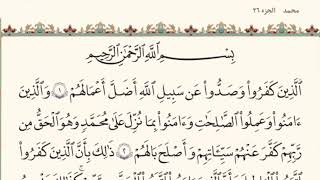 محمد الجزء ٢٦
بِسْمِ ٱللَّهِ ٱلرَّحْمَٰنِ ٱلرَّحِيمِ
ٱلَّذِينَ كَفَرُوا۟ وَصَدُّوا۟ عَن سَبِيلِ ٱللَّهِ أَضَلَّ أَعْمَٰلَهُمْ ١ وَٱلَّذِينَ
ءَامَنُوا۟ وَعَمِلُوا۟ ٱلصَّٰلِحَٰتِ وَءَامَنُوا۟ بِمَا نُزِّلَ عَلَىٰ مُحَمَّدٍ وَهُوَ ٱلْحَقُّ مِن
رَّبِّهِمْ كَفَّرَ عَنْهُمْ سَيِّـَٔاتِهِمْ وَأَصْلَحَ بَالَهُمْ ٢ ذَٰلِكَ بِأَنَّ ٱلَّذِينَ كَفَرُوا۟